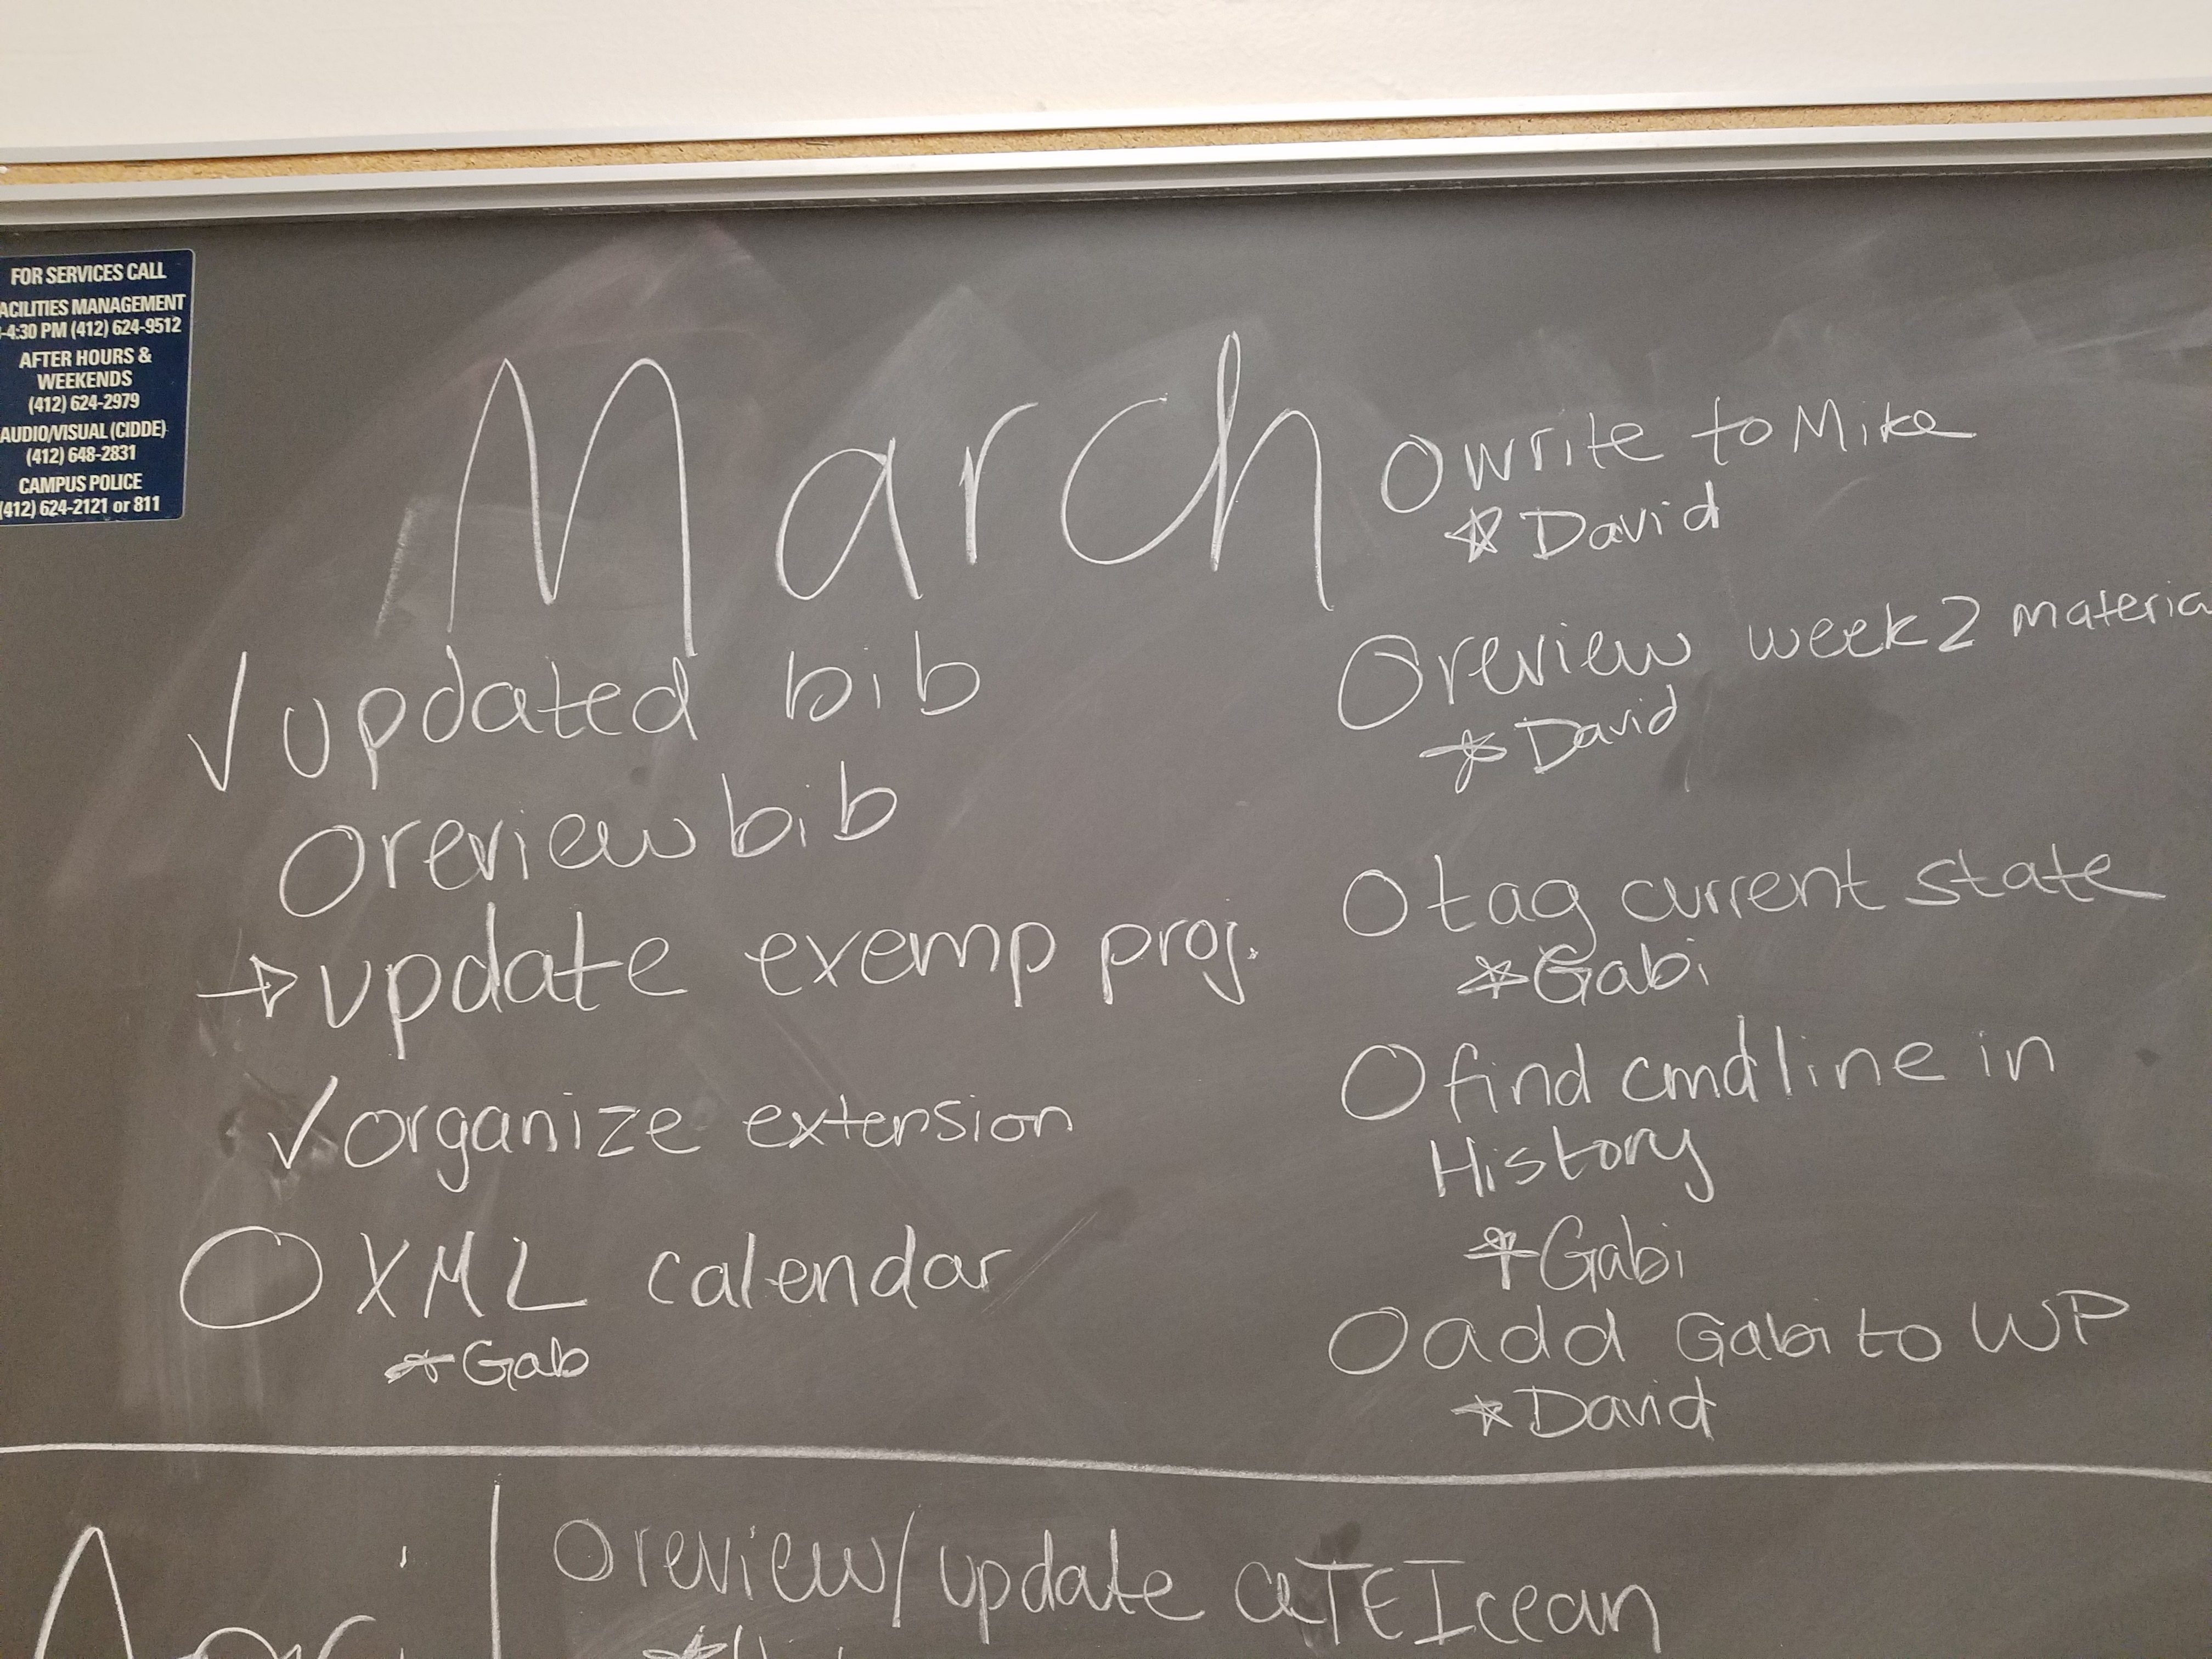 FOR SERVICES CALL
ACILITIES MANAGEMENT
-4:30 PM (412) 624-9512
AFTER HOURS &
WEEKENDS
(412) 624-2979
AUDIO/VISUAL (CIDDE)
(412) 648-2831
CAMPUS POLICE
(412) 624-2121 or 811
March
✓ updated bib
O review bib
→ update exemp proj.
✓ organize extension
O XML calendar
* Gab
O write to Mike
* David
O review week 2 materia
* David
O tag current state
* Gabi
O find cmd line in
History
* Gabi
O add Gabi to WP
* David
April
O review/update TEI